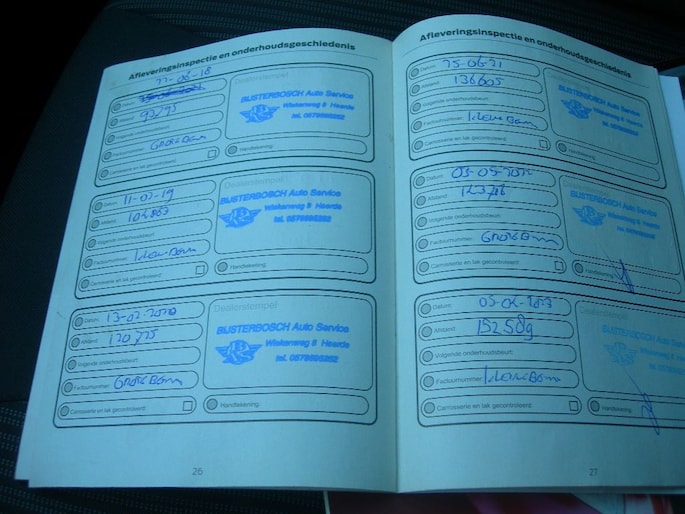 Afleveringsinspectie en onderhoudsgeschiedenis
22-06-18
Datum:
Afstand:
Volgende onderhoudsbeurt:
Factuurnummer: Grote Beurt
Carrosserie en lak gecontroleerd:
Dealerstempel
BIJSTERBOSCH Auto Service
Wiekenweg 8 Heerde
tel. 0578695282
Handtekening:
Datum: 11-02-19
Afstand:
Volgende onderhoudsbeurt:
Factuurnummer: kleine Beurt
Carrosserie en lak gecontroleerd:
Dealerstempel
BIJSTERBOSCH Auto Service
Wiekenweg 8 Heerde
tel. 0578695282
Handtekening:
Datum: 13-02-2020
Afstand: 120775
Volgende onderhoudsbeurt:
Factuurnummer: Grote Beurt
Carrosserie en lak gecontroleerd:
Dealerstempel
BIJSTERBOSCH Auto Service
Wiekenweg 8 Heerde
tel. 0578695282
Handtekening:
26
Afleveringsinspectie en onderhoudsgeschiedenis
Datum:
Afstand: 136605
Volgende onderhoudsbeurt:
Factuurnummer: kleine Beurt
Carrosserie en lak gecontroleerd:
Dealerstempel
BIJSTERBOSCH Auto Service
Wiekenweg 8 Heerde
tel. 0578695282
Handtekening:
Datum:
Afstand:
Volgende onderhoudsbeurt:
Factuurnummer: Grote Beurt
Carrosserie en lak gecontroleerd:
Dealerstempel
BIJSTERBOSCH Auto Service
Wiekenweg 8 Heerde
tel. 0578695282
Handtekening:
Datum:
Afstand: 152589
Volgende onderhoudsbeurt:
Factuurnummer: kleine Beurt
Carrosserie en lak gecontroleerd:
Dealerstempel
BIJSTERBOSCH Auto
Wiekenweg 8
tel.
Handtekening:
27